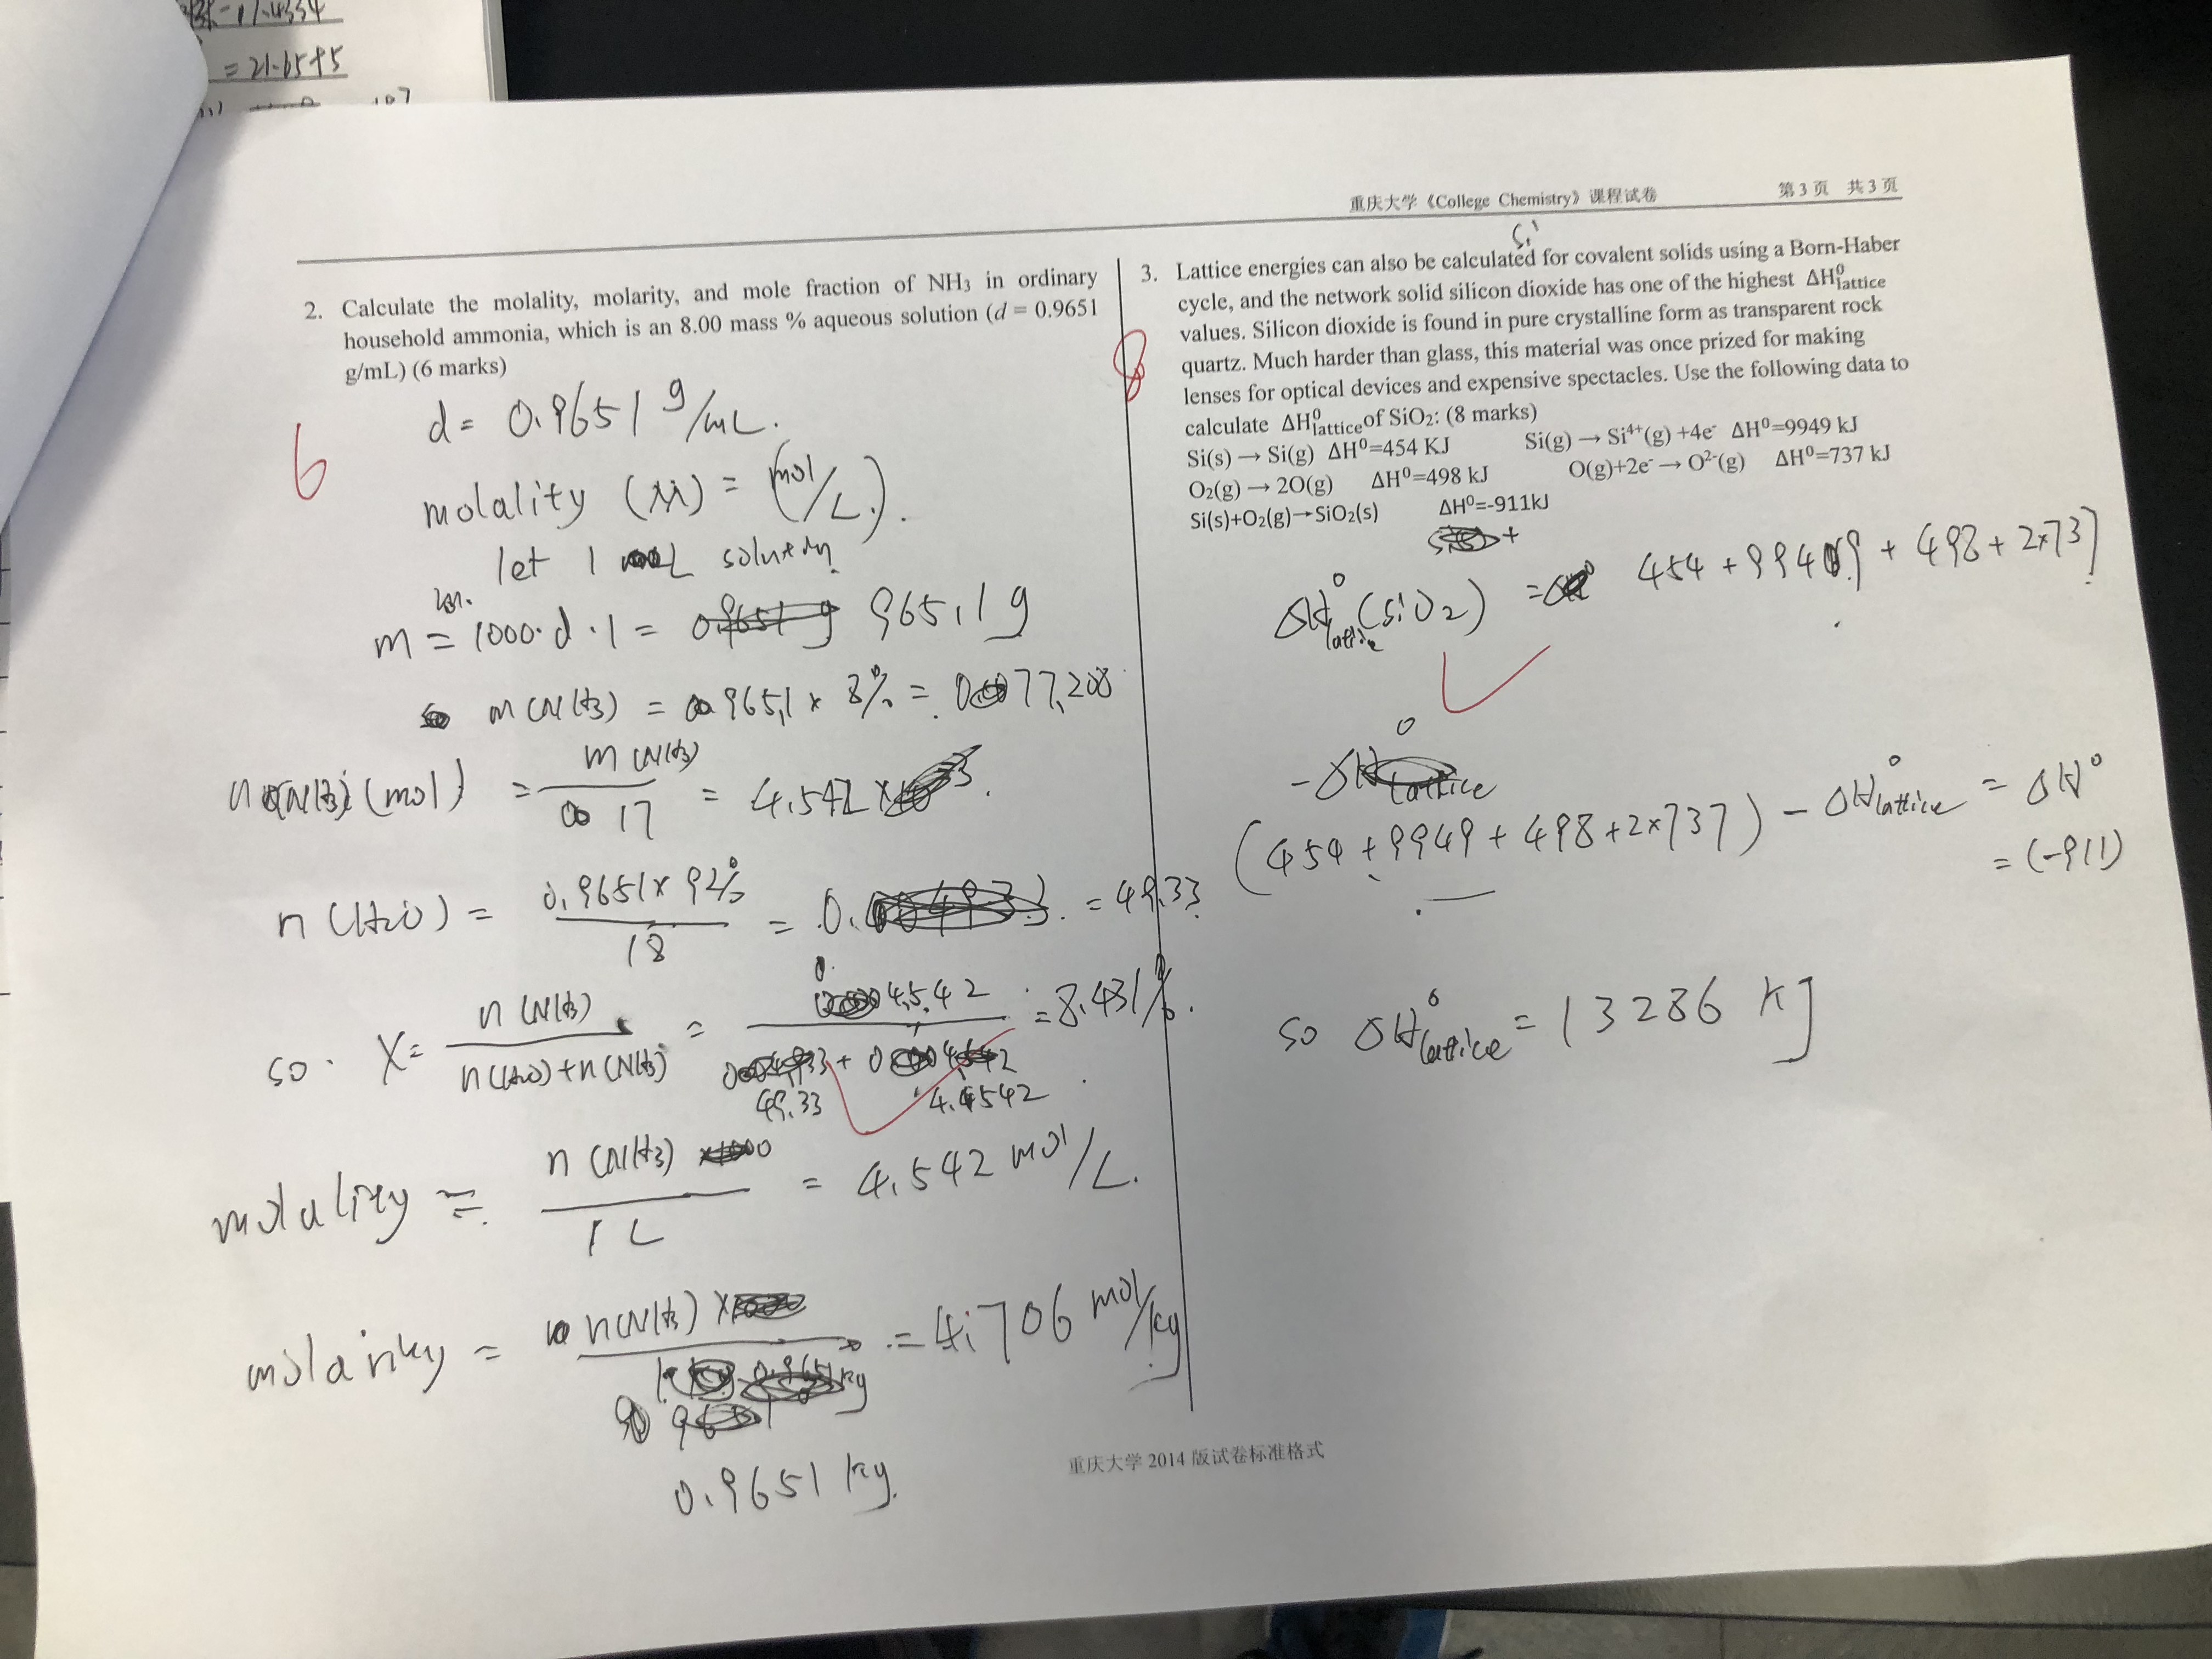 = 21.65+5
重庆大学《College Chemistry》课程试卷 第 3 页 共 3 页
2. Calculate the molality, molarity, and mole fraction of NH₃ in ordinary
household ammonia, which is an 8.00 mass % aqueous solution (d = 0.9651
g/mL) (6 marks)
6
d = 0.9651 g/mL.
molality (M) = (mol/L).
let 1 L solution
m = 1000·d·1 = 965.1 g
m(NH3) = 965.1 × 8% = 77.208
n(NH3)(mol) = m(NH3) / 17 = 4.542
n(H2O) = 0.9651×92% / 18 = 49.33
so. X = n(NH3) / n(H2O)+n(NH3) = 4.542 / 49.33 + 4.4542 = 8.431%.
molality = n(NH3) / 1 L = 4.542 mol/L.
molarity = n(NH3) / 0.9651 kg = 4.706 mol/kg
3. Lattice energies can also be calculated for covalent solids using a Born-Haber
cycle, and the network solid silicon dioxide has one of the highest ΔH⁰lattice
values. Silicon dioxide is found in pure crystalline form as transparent rock
quartz. Much harder than glass, this material was once prized for making
lenses for optical devices and expensive spectacles. Use the following data to
calculate ΔH⁰lattice of SiO₂: (8 marks)
8
Si(s) → Si(g) ΔH⁰=454 KJ Si(g) → Si⁴⁺(g) +4e⁻ ΔH⁰=9949 kJ
O₂(g) → 2O(g) ΔH⁰=498 kJ O(g)+2e⁻ → O²⁻(g) ΔH⁰=737 kJ
Si(s)+O₂(g)→SiO₂(s) ΔH⁰=-911kJ
ΔH⁰lattice(SiO2) = 454 + 9949 + 498 + 2×737
(454 + 9949 + 498 + 2×737) - ΔH⁰lattice = ΔH⁰
= (-911)
so ΔH⁰lattice = 13286 KJ
重庆大学 2014 版试卷标准格式